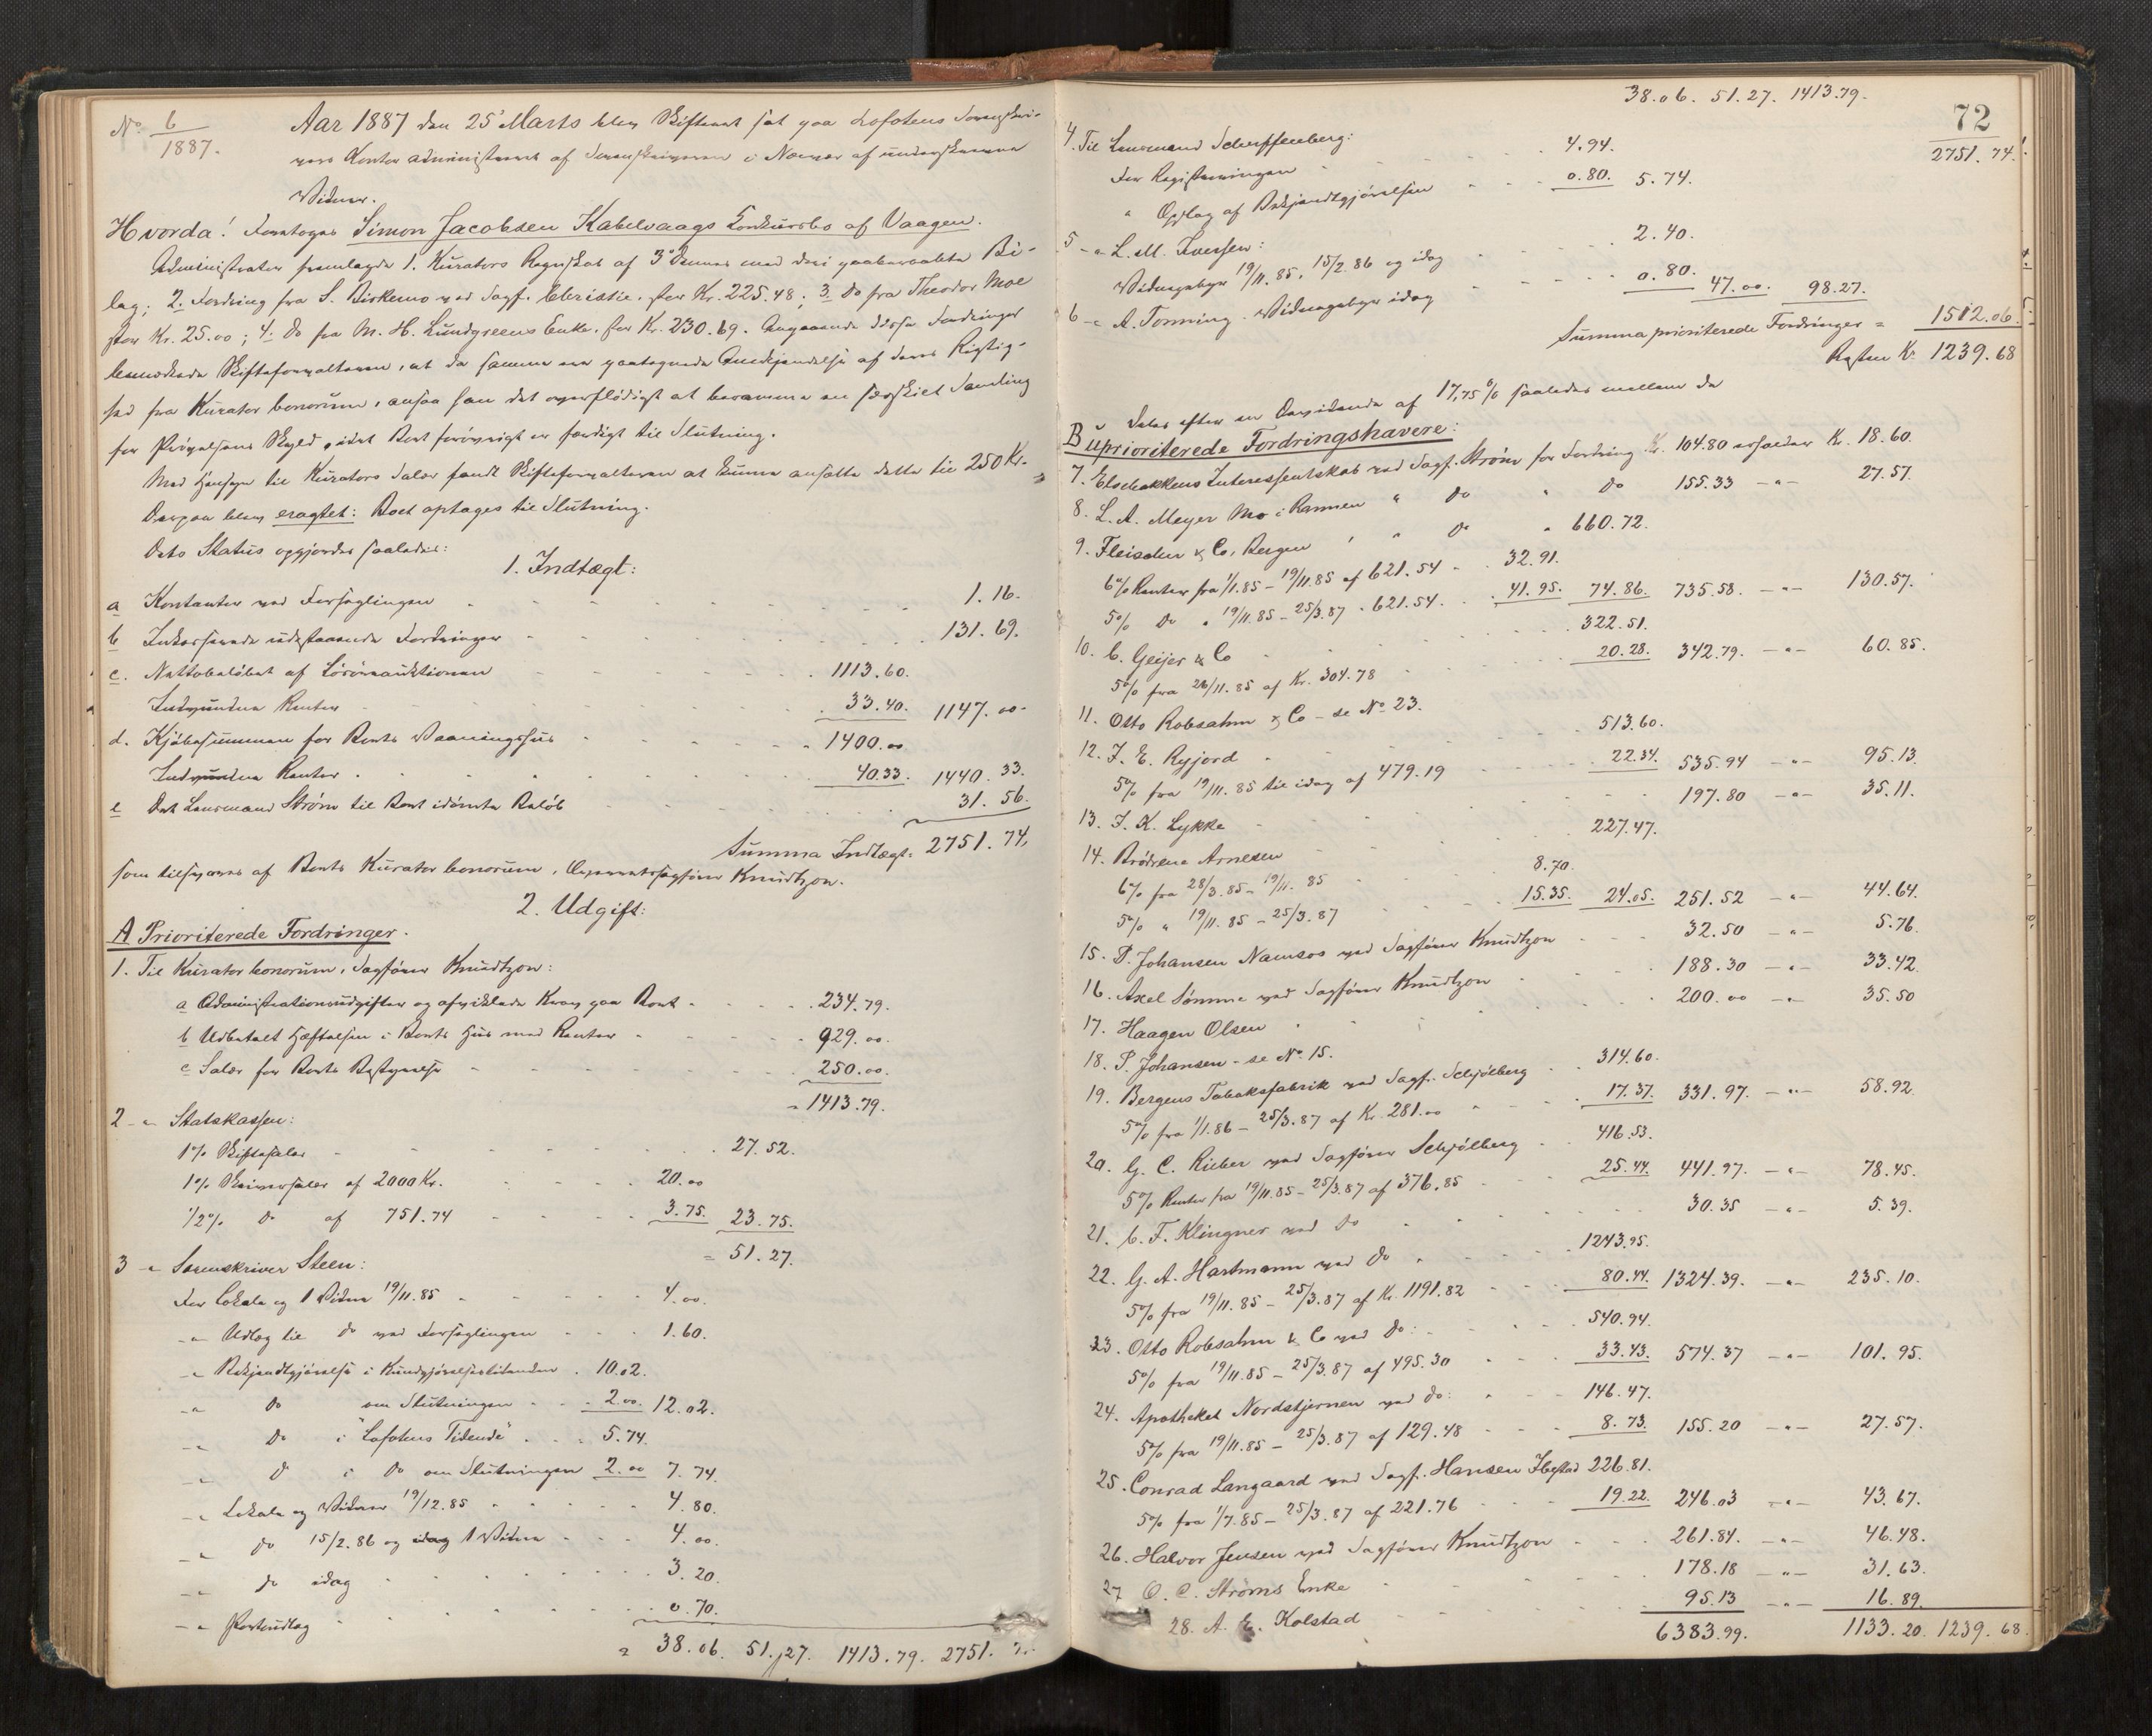 No 6/1887.
Aar 1887 den 25 Marts blev Skifteret sat paa Lofotens Sorenskri-
vers Kontor administreret af Sorenskriveren i Nærvær af underskrevne
Vidner.
Hvorda! Foretoges Simon Jacobsen Kabelvaags Konkursbo af Vaagen.
Administrator fremlagde 1. Kurators Regnskab af 3 dennes med deri paaberaabte Bi-
lag; 2. Fordring fra S. Birkemo ved Sagf. Christie, stor Kr. 225.48; 3. Do fra Theodor Moe
stor Kr. 25.00; 4. do fra M. H. Lundgreens Enke, stor Kr. 230.69. Angaaende disse Fordringer
bemærkede Skifteforvalteren, at da samme ere paategnede Anerkjendelse af deres Rigtig-
hed fra Kurator bonorum, ansaa han det overflødigt at beramme en særskilt Samling
for Prøvelsens Skyld, idet Boet forøvrigt er færdigt til Slutning.
Med Hensyn til Kurators Salær fandt Skifteforvalteren at kunne ansætte dette til 250 Kr.
Derpaa blev eragtet: Boet optages til Slutning.
Dets Status opgjordes saaledes:
1. Indtægt:
a Kontanter ved Forseglingen 1.16.
b Inkasserede udestaaende Fordringer 131.69.
c. Nettobeløbet af Løsøreauktionen 1113.60.
Indvundne Renter 33.40. 1147.00
d. Kjøbesummen for Boets Vaaningshus 1400.00
Indvundne Renter 40.33. 1440.33.
e Det Lensmand Strøm til Boet idømte Beløb 31.56.
Summa Indtægt: 2751.74,
som tilsvares af Boets Kurator bonorum, Overretssagfører Knudtzon.
2. Udgift:
A Prioriterede Fordringer.
1. Til Kurator bonorum, Sagfører Knudtzon:
a Administrationsudgifter og afviklede Krav paa Boet 234.79.
b Udbetalt Hæftelsen i Boets Hus med Renter 929.00.
c Salær for Boets Bestyrelse 250.00.
= 1413.79.
2 -"- Statskassen:
1% Skiftesalær 27.52.
1% Skriversalær af 2000 Kr. 20.00
1/2% do af 751.74 3.75. 23.75.
= 51.27.
3 -"- Sorenskriver Steen:
For Lokale og 1 Vidne 19/11.85 4.00.
-"- Udlæg til do ved Forseglingen 1.60.
-"- Bekjendtgjørelse i Kundgjørelsestidenden 10.02.
-"- Do om Slutningen 2.00. 12.02.
-"- Do i "Lofotens Tidende" 5.74.
-"- D i Do om Slutningen 2.00 7.74.
-"- Lokale og Vidner 19/12.85 4.80.
-"- do 15/2.86 og idag 1 Vidne 4.00.
-"- do idag 3.20.
-"- Portoudlæg 0.70.
= 38.06. 51.27. 1413.79. 2751.
38.06. 51.27. 1413.79.
72
2751.74.
4. Til Lensmand Scheffenberg:
For Registreringen 4.94.
" Opslag af Bekjendtgjørelsen 0.80. 5.74.
5 -"- L. M. Iversen:
Vidnegebyr 19/11.85, 15/2.86 og idag 2.40.
6 -"- A. Tønning. Vidnegebyr idag 0.80. 47.00. 98.27.
Summa prioriterede Fordringer = 1512.06.
Resten Kr. 1239.68
deles efter en Dividende af 17,75% saaledes mellem de
B uprioriterede Fordringshavere:
7. Elschakkens Interessentskab ved Sagf. Strøm for Fordring Kr. 104.80 erholder Kr. 18.60.
8. L. A. Meyer Mo i Rannen " do " do 155.33 -"- 27.57.
9. Fleischer & Co, Bergen " " do " 660.72.
6% Renter fra 1/1.85 - 19/11.85 af 621.54 32.91.
5% do " 19/11.85 - 25/3.87 " 621.54. 41.95. 74.86. 735.58. -"- 130.57.
10. C. Geijer & Co 322.51.
5% fra 26/11.85 af Kr. 304.78 20.28. 342.79. -"- 60.85.
11. Otto Robsahm & Co - se No 23.
12. J. E. Ryjord 513.60.
5% fra 19/11.85 til idag af 479.19 22.34. 535.94 -"- 95.13.
13. J. K. Lykke 197.80 -"- 35.11.
14. Brødrene Arnesen 227.47.
6% fra 28/3.85 - 19/11.85 8.70.
5% " 19/11.85 - 25/3.87 15.35. 24.05. 251.52 -"- 44.64.
15. P. Johansen Namsos ved Sagfører Knudtzon 32.50 -"- 5.76.
16. Axel Sømme ved Sagfører Knudtzon 188.30 -"- 33.42.
17. Haagen Olsen 200.00 -"- 35.50
18. P. Johansen - se No 15.
19. Bergens Tobaksfabrik ved Sagf. Schjølberg 314.60.
5% fra 1/1.86 - 25/3.87 af Kr. 281.00 17.37. 331.97. -"- 58.92.
20. G. C. Rieber ved Sagfører Schjølberg 416.53.
5% Renter fra 19/11.85 - 25/3.87 af 376.85 25.44. 441.97. -"- 78.45.
21. C. F. Klingner ved Do 30.35 -"- 5.39.
22. G. A. Hartmann ved do 1243.95.
5% fra 19/11.85 - 25/3.87 af Kr. 1191.82 80.44. 1324.39. -"- 235.10.
23. Otto Robsahm & Co ved do: 540.94.
5% fra 19/11.85 - 25/3.87 af 495.30 33.43. 574.37 -"- 101.95.
24. Apotheket Nordstjernen ved do: 146.47.
5% fra 19/11.85 - 25/3.87 af 129.48 8.73. 155.20 -"- 27.57.
25. Conrad Langaard ved Sagf. Hansen Ibestad 226.81.
5% fra 1/7.85 - 25/3.87 af 221.76 19.22. 246.03 -"- 43.67.
26. Halvor Jensen ved Sagfører Knudtzon 261.84. -"- 46.48.
27 O. C. Strøms Enke 178.18 -"- 31.63.
28. A. E. Kolstad 95.13 -"- 16.89.
6383.99. 1133.20. 1239.68.